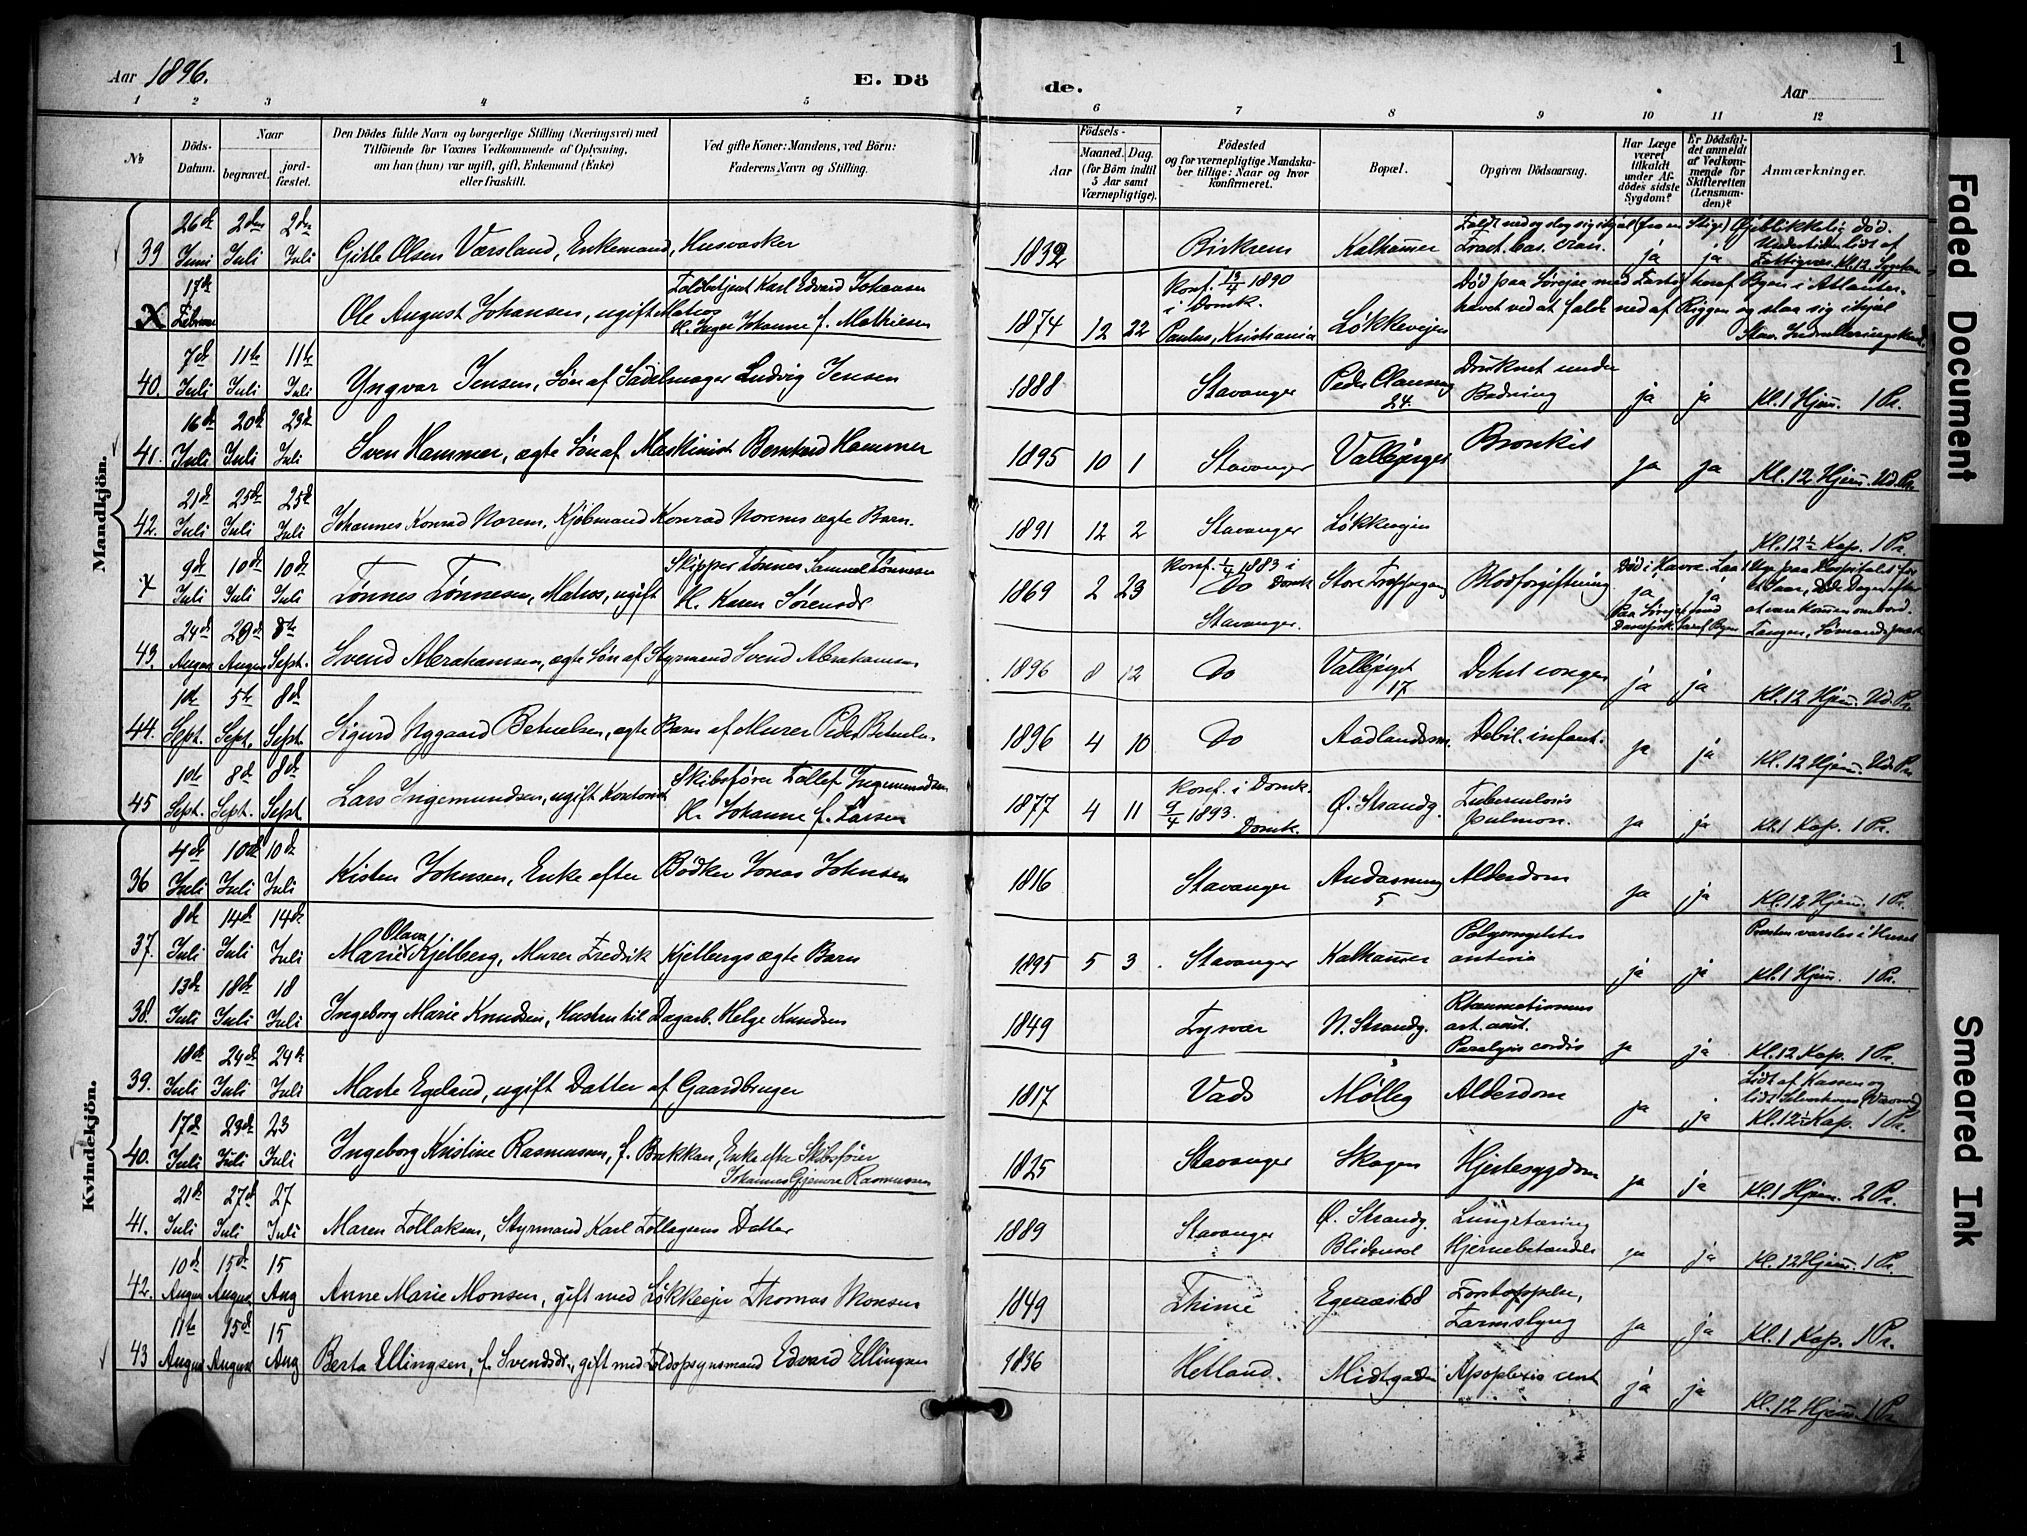 Aar 1896.
E. Dö
de.
Aar
1
1 2 3 4 5 6 7 8 9 10 11 12
No
Döds-
Datum.
Naar
begravet.
jord-
fæstet.
Den Dödes fulde Navn og borgerlige Stilling (Næringsvei) med
Tilföiende for Voxnes Vedkommende af Oplysning,
om han (hun) var ugift, gift, Enkemand (Enke)
eller fraskilt.
Ved gifte Koner: Mandens, ved Börn:
Faderens Navn og Stilling.
Födsels-
Aar
Maaned.
Dag.
(for Börn indtil
5 Aar samt
Værnepligtige).
Födested
og for værnepligtige Mandska-
ber tillige: Naar og hvor
konfirmeret.
Bopæl.
Opgiven Dödsaarsag.
Har Læge
været
tilkaldt
under Af-
dödes sidste
Sygdom?
Er Dödsfal-
det anmeldt
af Vedkom-
mende for
Skifteretten
(Lensman-
den)?
Anmærkninger.
Mandkjön.
39 26de Juni 2den Juli 2den Juli Gitle Olsen Værsland, Enkemand, Husvasker 1832 Birkrem Kalhamer ja ja Øjeblikkelig död.
X 17de Februar Ole August Johansen, ugift Matros Toldbetjent Karl Edvard Johansen
H. Inger Johanne f. Mathiesen 1874 12 22 Konf. 13/4 1890
i Domk.
Paulus, Kristiania Løkkevejen
40. 7de Juli 11te Juli 11te Juli Yngvar Jensen, Søn af Sadelmager Ludvig Jensen 1888 Stavanger 24. Druknet under
Badning ja ja Kl. 1 Hjem. 1 Pr.
41. 16de Juli 20de Juli 23de Juli Sven Hammer, ægte Søn af Maskinist Bernhard Hammer 1895 10 1 Stavanger Bronkit ja ja Kl. 12 Hjem. Ud. Pr.
42. 21de Juli 25de Juli 25de Juli Johannes Konrad Norem, Kjøbmand Konrad Norems ægte Barn. 1891 12 2 Stavanger Løkkevejen Kl. 12½ Kap. 1 Pr.
X 9de Juli 10de Juli 10de Juli Tønnes Tønnesen, Matros, ugift Skipper Tønnes Samuel Tønnesen
H. Karen Sørensdr 1869 2 23 Do Domk
Stavanger. Blodforgiftning ja ja
43. 24de August 29de August 8de Sept. Svend Abrahamsen, ægte Søn af Styrmand Svend Abrahamsen 1896 8 12 Do 17 ja ja Kl. 12 Hjem. Ud. Pr.
44. 1ste Sept. 5te Sept. 8de Sept. Sigurd Nygaard Betuelsen, ægte Barn af Murer Peder Betuels. 1896 4 10 Do Aadlandsm. Debil. infant. ja ja Kl. 12 Hjem. Ud. Pr.
45 1ste Sept. 8de Sept. 8de Sept Lars Ingemundsen, ugift Kontorist Skibsfører Tollef Ingemundsen
H. Johanne f. Larsen 1877 4 11 Konf. i Domk.
9/4 1893.
Domk. Ø. Strandg. Tuberculosis
pulmon. ja ja Kl. 1 Kap. 1 Pr.
Kvindekjön.
36 4de Juli 10de Juli 10de Juli Kisten Johnsen, Enke efter Bødker Jonas Johnsen 1816 Stavanger 5 Alderdom ja ja Kl. 12 Hjem. 1 Pr.
37. 8de Juli 14de Juli 14de Juli Marie Olava Kjelberg, Murer Fredrik Kjelbergs ægte Barn 1895 5 3 Stavanger Kalhamer ja ja Presten varsles i Huset
Kl. 1 Hjem. 1 Pr.
38. 13de Juli 18de Juli 18 Juli Ingeborg Marie Knudsen, Hustru til Dagarb. Helge Knudsen 1849 Tysvær N. Strandg. Rheumatismus
art. acut.
Paralysis cordis ja ja Kl. 12 Kap. 1 Pr.
39. 18de Juli 24de Juli 24de Juli Marte Egeland, ugift Datter af Gaardbruger 1817 Vads Mølleg Alderdom ja ja Kl. 12½ Kap. 1 Pr.
40. 17de Juli 23de Juli 23 Juli Ingeborg Kristine Rasmussen, f. Bakkan, Enke efter Skibsfører
Johannes Gjemre Rasmussen 1825 Stavanger Skagen Hjertesygdom ja ja Kl. 1 Hjem. 2 Pr.
41. 21de Juli 27de Juli 27 Juli Maren Tollaksen, Styrmand Karl Tollagsens Datter 1889 Stavanger Ø. Strandg.
Blidensol Lungetæring
Hjernebetændels ja ja Kl. 12 Hjem. 1 Pr.
42. 10de August 15de August 15 Aug Anne Marie Monsen, gift med Løkkeejer Thomas Monsen 1849 Thime Egenæs 68 Forstoppelse,
Tarmslyng ja ja Kl. 1 Kap. 1 Pr.
43 11te August 15de August 15 Aug Berta Ellingsen, f. Svendsdr., gift med Toldopsynsmand Edvard Ellingsen 1836 Hetland. Midtgaden Apoplexis ja ja Kl. 12 Hjem. 1 Pr
Faded Document
Smeared Ink